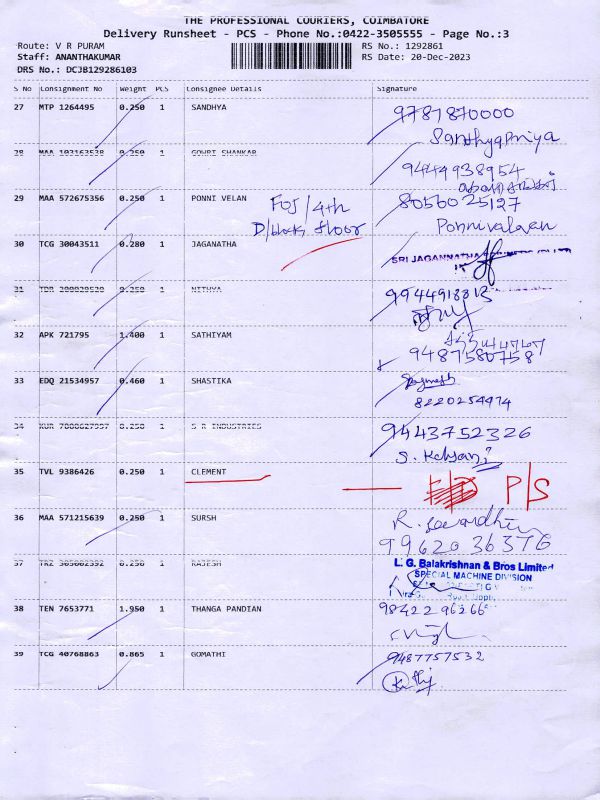 THE PROFESSIONAL COURIERS, COIMBATORE
Delivery Runsheet - PCS - Phone No.:0422-3505555 - Page No.:3
Route: V R PURAM
RS No.: 1292861
Staff: ANANTHAKUMAR
RS Date: 20-Dec-2023
DRS No.: DCJB129286103
S No Consignment No Weight PCS Consignee Details Signature
27 MTP 1264495 0.250 1 SANDHYA 9787870000
Santhyapriya
28 MAA 103163538 0.250 1 GOWRI SHANKAR
9444938954
29 MAA 572675356 0.250 1 PONNI VELAN 8056025127
FOJ/4th
D/block floor
Ponnivalavan
30 TCG 30043511 0.280 1 JAGANATHA
SRI JAGANNATHA
31 0.250 1 NITHYA 9944918313
32 APK 721795 1.400 1 SATHIYAM
9487580758
33 EDQ 21534957 0.460 1 SHASTIKA
8220254974
34 KUR 0.250 1 S R INDUSTRIES 9443752326
S. Kalyani
35 TVL 9386426 0.250 1 CLEMENT P/S
36 MAA 571215639 0.250 1 SURSH
9962036376
37 TRZ 0.250 1 RAJESH L. G. Balakrishnan & Bros Limited
SPECIAL MACHINE DIVISION
38 TEN 7653771 1.950 1 THANGA PANDIAN 9842296266
39 TCG 40768863 0.865 1 GOMATHI 9487757532